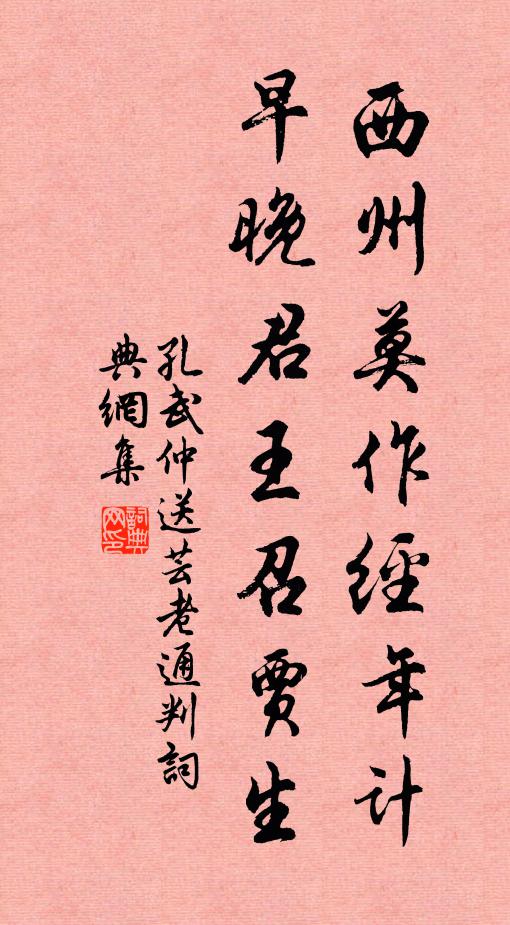 西州莫作經年計
早晚君王召賈生
孔武仲送芸老通判詞
典網集
詞典網印